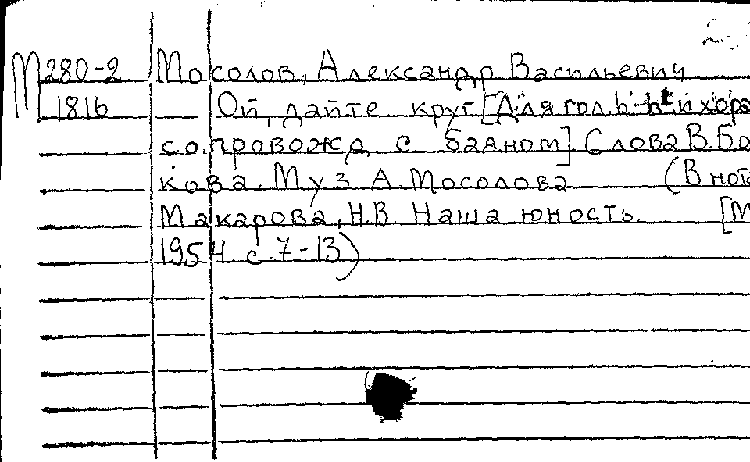 М280-2 Мосолов, Александр Васильевич
1816 Ой, дайте круг [Для гол. h-h² и хора
сопровожд с баяном] Слова В. Бо
кова. Муз А. Мосолова (В нот
Макарова, Н.В. Наша юность. [М
1954 с 7-13)